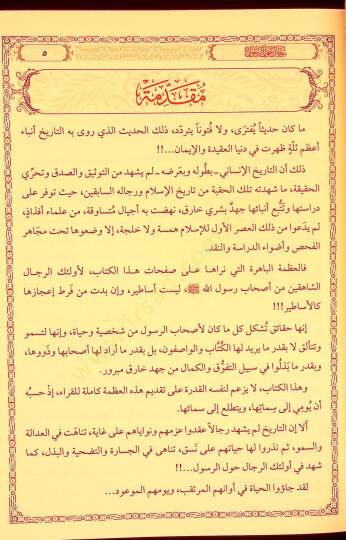 رجال حول الرسول
٥
مُقدِّمَة
ما كان حديثاً يُفتَرَى، ولا فُتوناً يتردّد، ذلك الحديث الذي روى به التاريخ أنباء
أعظم ثلّةٍ ظهرت في دنيا العقيدة والإيمان...!!
ذلك أن التاريخ الإنساني ـ بطُوله وبعَرضه ـ لم يشهد من التوثيق والصدق وتحرِّي
الحقيقة، ما شهدته تلك الحقبة من تاريخ الإسلام ورجاله السابقين، حيث توفر على
دراستها وتَتبُّع أنبائها جهدٌ بشري خارق، نهضت به أجيال مُتساوقة، من علماء أفذاذٍ،
لم يدَعوا من ذلك العصر الأول للإسلام همسة ولا خلجة، إلا وضعوها تحت مجَاهر
الفحص وأضواء الدراسة والنقد.
فالعظمة الباهرة التي نراها على صفحات هذا الكتاب، لأولئك الرجـال
الشاهقين من أصحاب رسول الله ﷺ، ليست أساطير، وإن بدت من فَرط إعجازها
كالأساطير!!!
إنها حقائق تُشكل كل ما كان لأصحاب الرسول من شخصية وحياة، وإنها لتسمو
وتتألق لا بقدر ما يريد لها الكُتَّاب والواصفون، بل بقدر ما أراد لها أصحابها وذَووها،
وبقدر ما بَذَلُوا في سبيل التفوُّق والكمال من جهد خارق مبرور.
وهذا الكتاب، لا يزعم لنفسه القدرة على تقديم هذه العظمة كاملة للقراء، إذْ حسبُه
أن يُومِي إلى سِماتِها، ويتطلع إلى سمائها.
ألا إن التاريخ لم يشهد رجالاً عقدوا عزمهم ونواياهم على غاية، تناهَت في العدالة
والسمو، ثم نذروا لها حياتهم على نَسق، تناهى في الجسارة والتضحية والبذل، كما
شهد في أولئك الرجال حول الرسول...!!
لقد جاؤوا الحياة في أوانهم المرتقب، ويومهم الموعود...